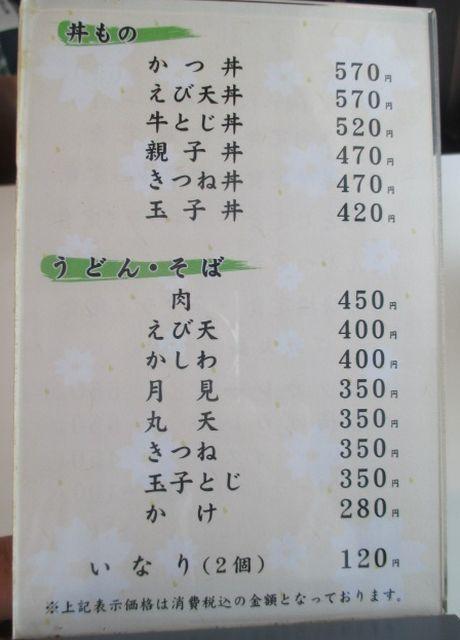 丼もの
かつ丼 570円
えび天丼 570円
牛とじ丼 520円
親子丼 470円
きつね丼 470円
玉子丼 420円
うどん・そば
肉 450円
えび天 400円
かしわ 400円
月見 350円
丸天 350円
きつね 350円
玉子とじ 350円
かけ 280円
いなり(2個) 120円
※上記表示価格は消費税込の金額となっております。